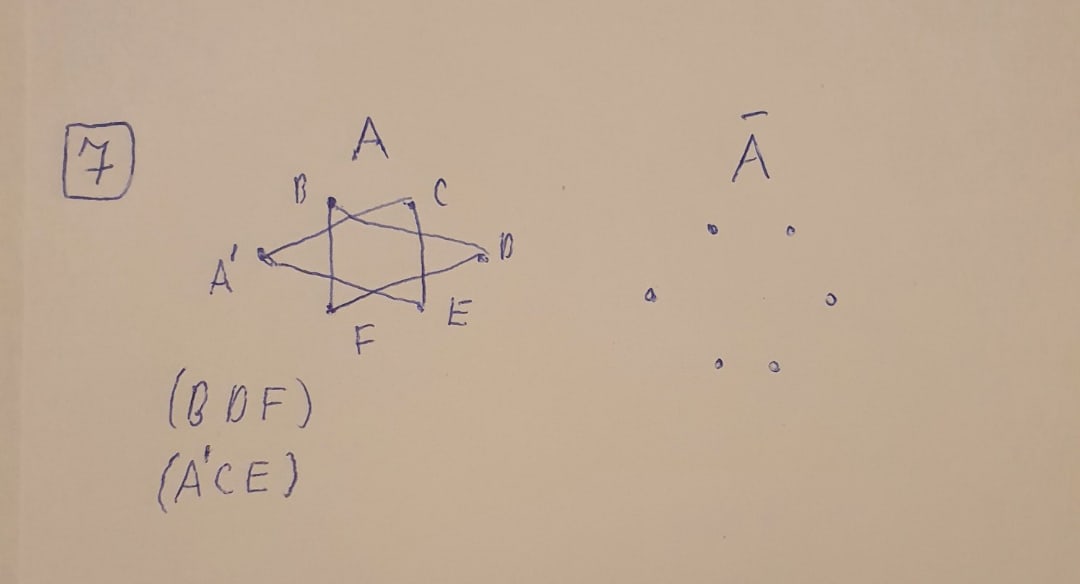 7
A
Ā
B C
A' D
F E
(BDF)
(A'CE)